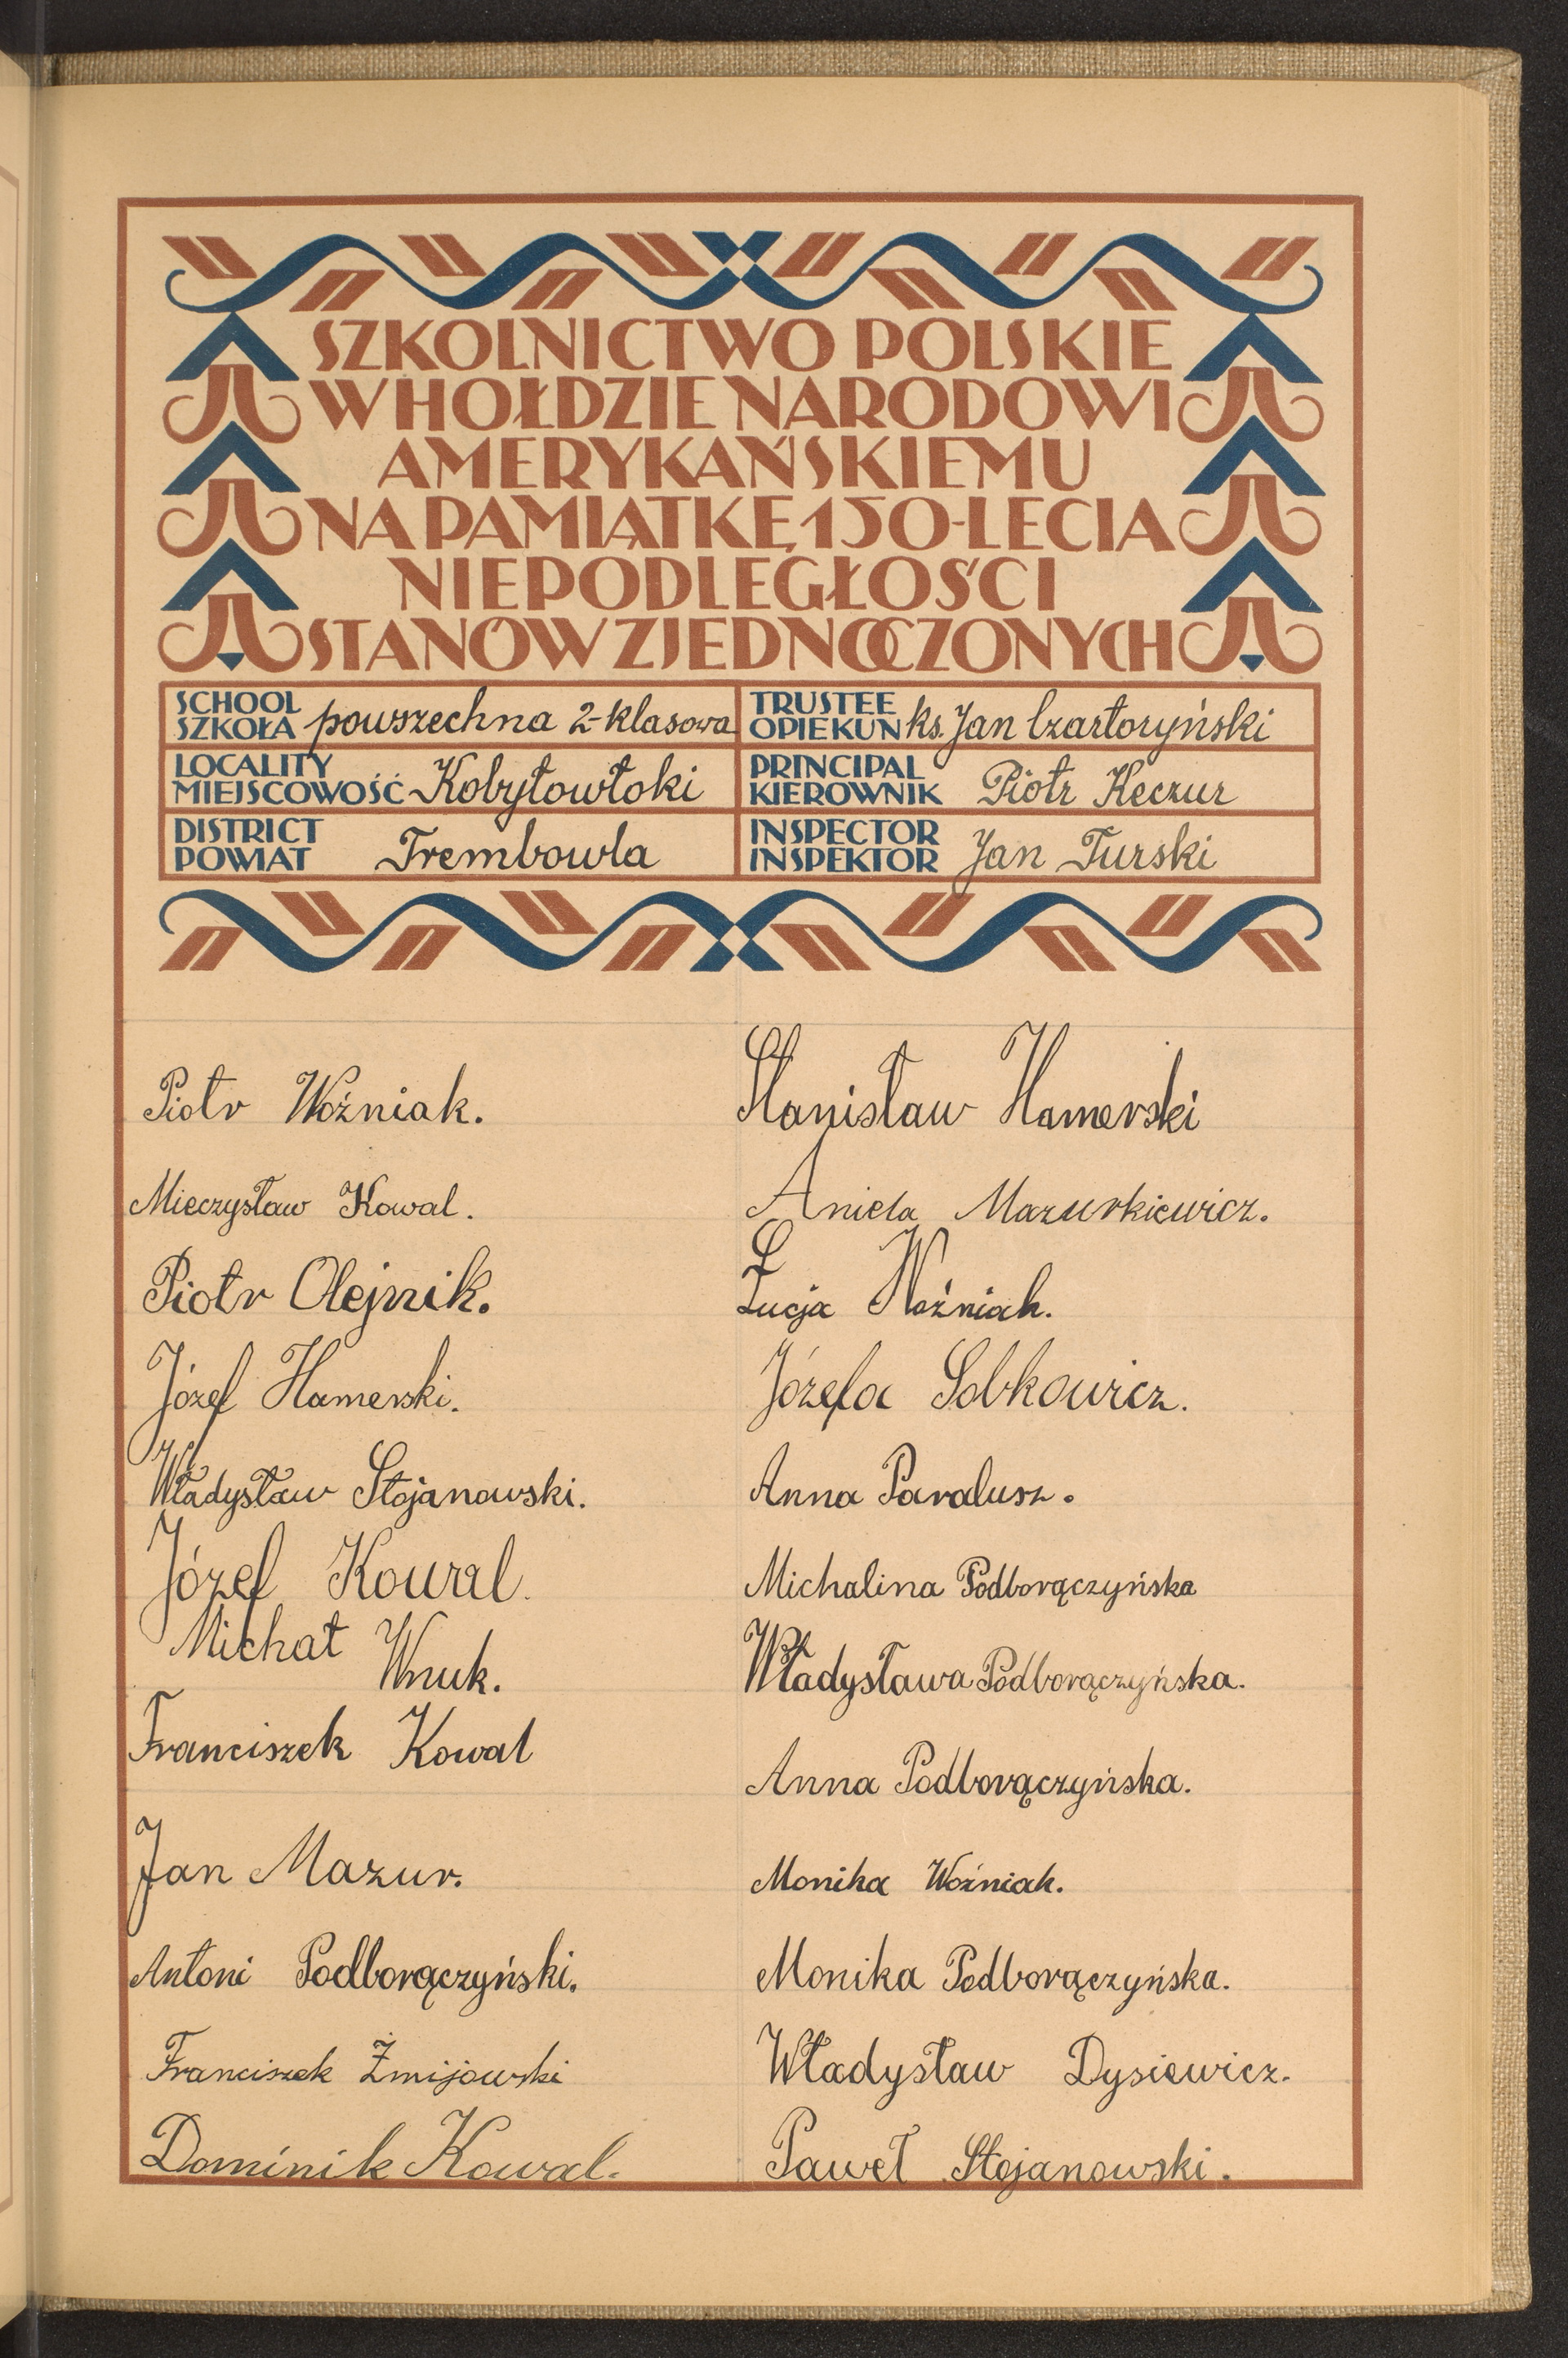 SZKOLNICTWO POLSKIE
W HOŁDZIE NARODOWI
AMERYKAŃSKIEMU
NA PAMIĄTKĘ 150-LECIA
NIEPODLEGŁOŚCI
STANÓW ZJEDNOCZONYCH
SCHOOL
SZKOŁA powszechna 2-klasowa
TRUSTEE
OPIEKUN ks. Jan Czartoryński
LOCALITY
MIEJSCOWOŚĆ Kobyłowłoki
PRINCIPAL
KIEROWNIK Piotr Keczur
DISTRICT
POWIAT Trembowla
INSPECTOR
INSPEKTOR Jan Turski
Piotr Woźniak.
Mieczysław Kowal.
Piotr Olejnik.
Józef Hamerski.
Władysław Stojanowski.
Józef Kowal.
Michał Wnuk.
Franciszek Kowal
Jan Mazur.
Antoni Podborączyński.
Franciszek Żmijowski
Dominik Kowal.
Stanisław Hamerski
Aniela Mazurkiewicz.
Łucja Woźniak.
Józefa Sobkowicz.
Anna Paralusz.
Michalina Podborączyńska
Władysława Podborączyńska.
Anna Podborączyńska.
Monika Woźniak.
Monika Podborączyńska.
Władysław Dysiewicz.
Paweł Stojanowski.